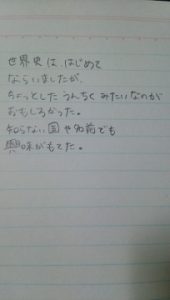 世界史は、はじめて
ならいましたが、
ちょっとしたうんちくみたいなのが
おもしろかった。
知らない国や名前でも
興味がもてた。